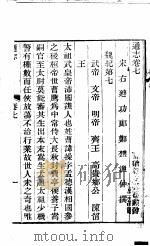 通志卷七
宋右迪功郎鄭樵漁仲撰
魏紀第七
武帝 文帝 明帝 齊王 高貴鄉公 陳留
王
太祖武皇帝沛國譙人也姓曹諱操字孟德漢相國參
之後桓帝世曹騰爲中常侍大長秋封費亭侯養子嵩
嗣官至太尉莫能審其生出本末嵩生太祖太祖少機
警有權數而任俠放蕩不治行業故世人未之奇也惟